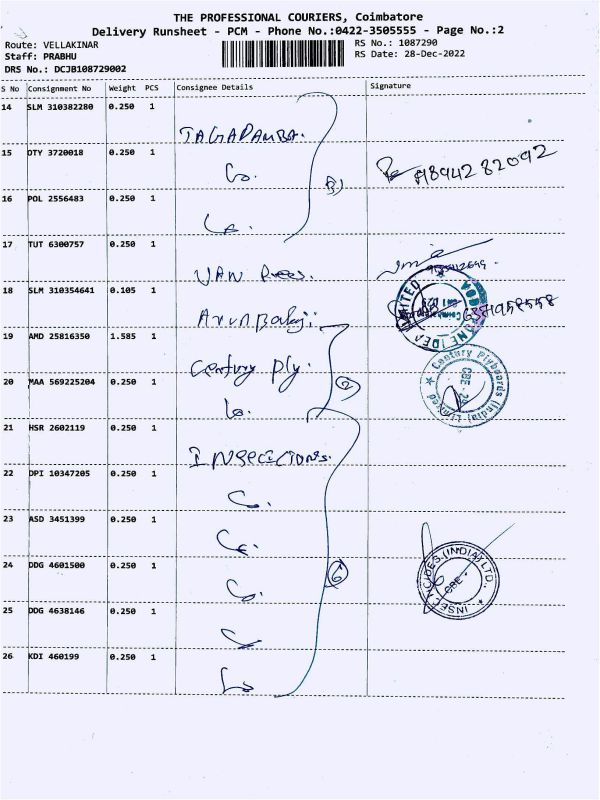 THE PROFESSIONAL COURIERS, Coimbatore
Delivery Runsheet - PCM - Phone No.:0422-3505555 - Page No.:2
Route: VELLAKINAR
RS No.: 1087290
Staff: PRABHU
RS Date: 28-Dec-2022
DRS No.: DCJB108729002
S No Consignment No Weight PCS Consignee Details Signature
14 SLM 310382280 0.250 1
JAGADAMBA.
15 OTY 3720018 0.250 1
3)
16 POL 2556483 0.250 1
17 TUT 6300757 0.250 1
VAN Rees.
18 SLM 310354641 0.105 1
Arun Balaji
19 AMD 25816350 1.585 1
Century Ply.
2
Century Plyboards (India) Limited ★ CBE
20 MAA 569225204 0.250 1
21 HSR 2602119 0.250 1
INSECTICIDES.
22 DPI 10347205 0.250 1
23 ASD 3451399 0.250 1
24 DDG 4601500 0.250 1
6
INSECTICIDES (INDIA) LTD. ★ CBE
25 DDG 4638146 0.250 1
26 KDI 460199 0.250 1